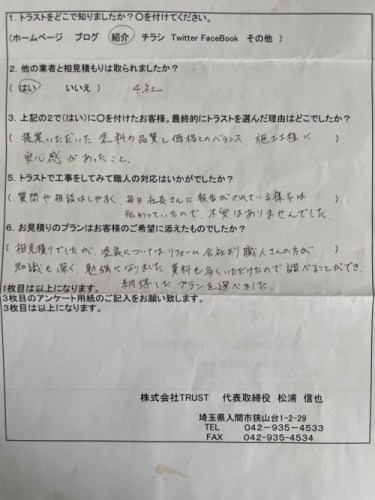 1. トラストをどこで知りましたか？〇を付けてください。
(ホームページ　ブログ　紹介　チラシ　Twitter FaceBook　その他 )
2. 他の業者と相見積もりは取られましたか？
( はい　いいえ )　4社
3. 上記の2で(はい)に〇を付けたお客様。最終的にトラストを選んだ理由はどこでしたか？
( 提案いただいた塗料の品質と価格とのバランス、施工仕様に )
安心感があったこと。
5. トラストで工事をしてみて職人の対応はいかがでしたか？
( 質問や相談はしやすく、毎日社長さんに報告がされている様子は )
伝わっていたので、不安はありませんでした。
6. お見積りのプランはお客様のご希望に添えたものでしたか？
( 相見積りでしたが、塗装についてはリフォーム会社より職人さんの方が )
知識も深く、勉強になりました。資料も多くいただけたので調べることができ、
納得したプランを選べました。
1枚目は以上になります。
3枚目のアンケート用紙のご記入をお願い致します。
3枚目は以上になります。
株式会社TRUST　代表取締役　松浦　信也
埼玉県入間市狭山台1-2-29
TEL　042-935-4533
FAX　042-935-4534